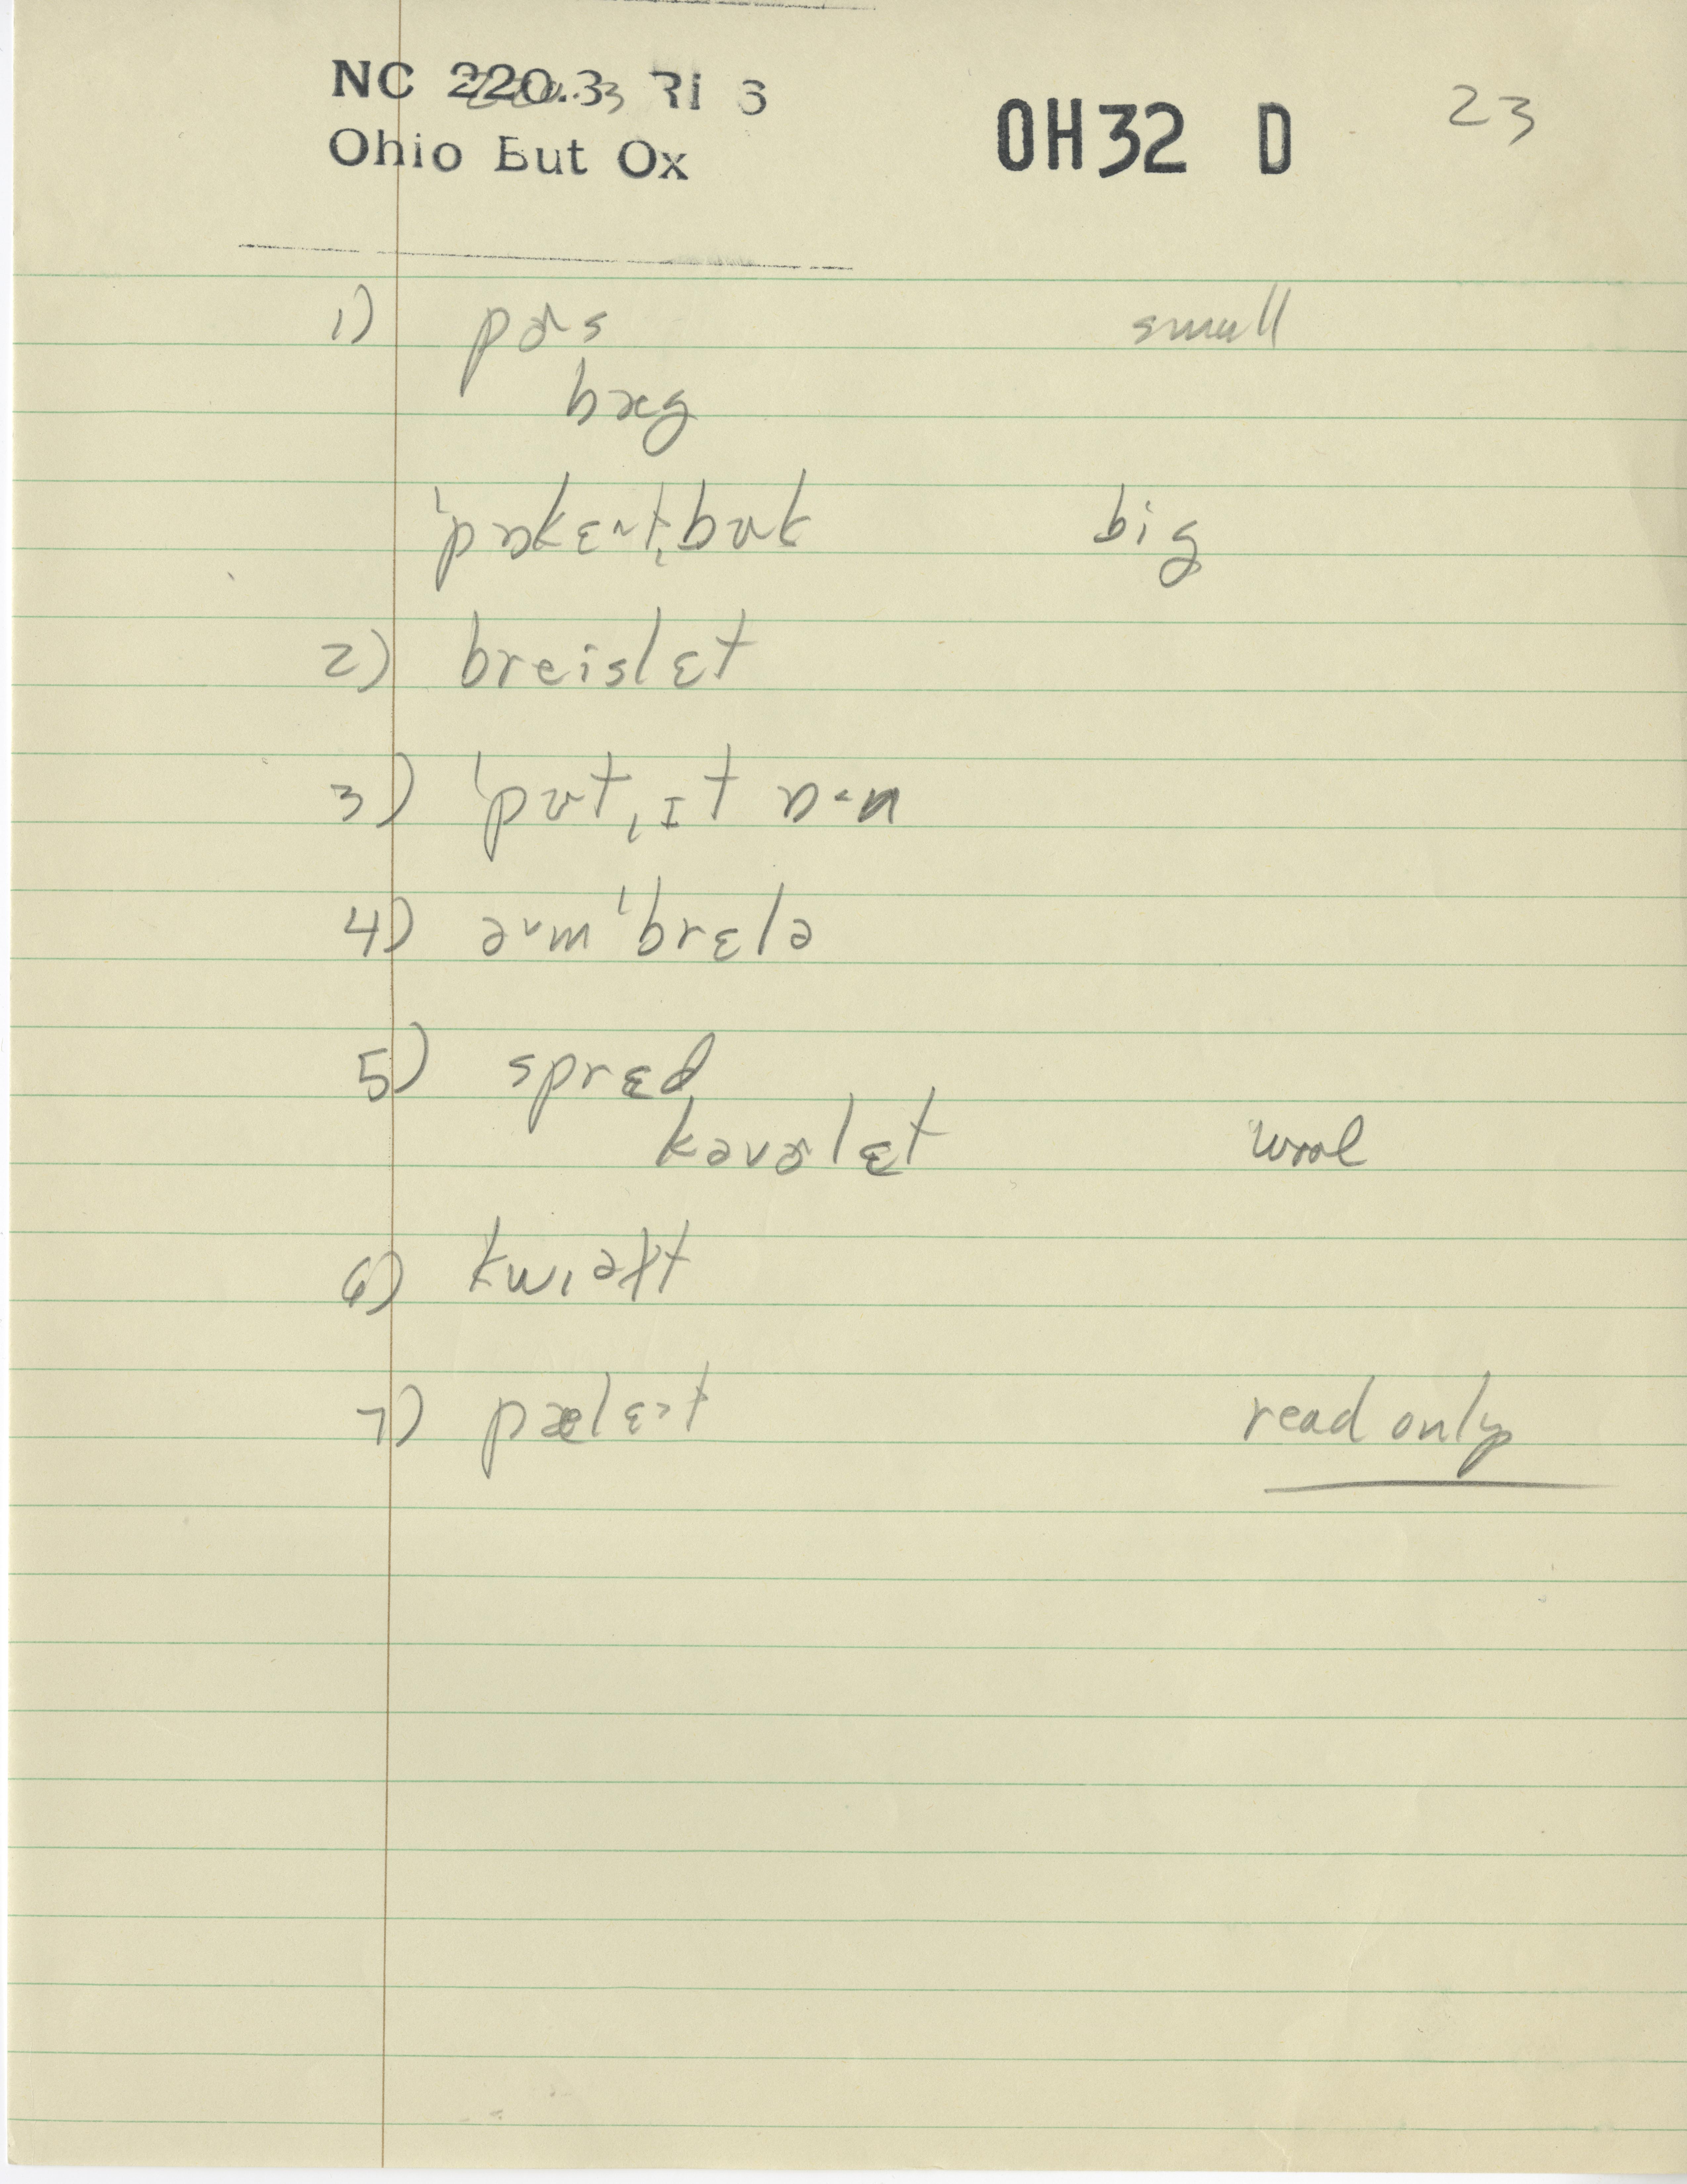 NC 220.3 Ri 3
OH32 D 23
Ohio But Ox
1) pɚs small
bæg
ˈpɒkɛ˞tˌbʊk big
2) breislɛt
3) ˈpʊtˌɪt ɒ·n
4) əᵛmˈbrɛlə
5) sprɛd
kəvɚlɛt wool
6) kwiəlt
7) pælɛ˞t read only